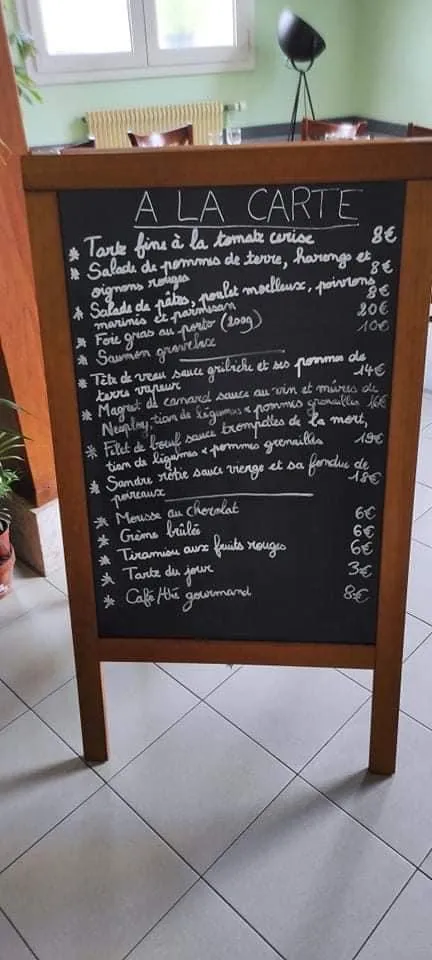 A LA CARTE
* Tarte fine à la tomate cerise 8€
* Salade de pommes de terre, harengs et
oignons rouges 8€
* Salade de pâtes, poulet moelleux, poivrons
marinés et parmesan 8€
* Foie gras au porto (200g) 20€
* Saumon gravelax 10€
* Tête de veau sauce gribiche et ses pommes de
terre vapeur 14€
* Magret de canard sauce au vin et mûres de
tian de légumes & pommes grenailles 16€
* Filet de bœuf sauce trompettes de la mort,
tian de légumes & pommes grenailles 19€
* Sandre rôtie sauce vierge et sa fondue de
poireaux 18€
* Mousse au chocolat 6€
* Crème brûlée 6€
* Tiramisu aux fruits rouges 6€
* Tarte du jour 3€
* Café/thé gourmand 8€